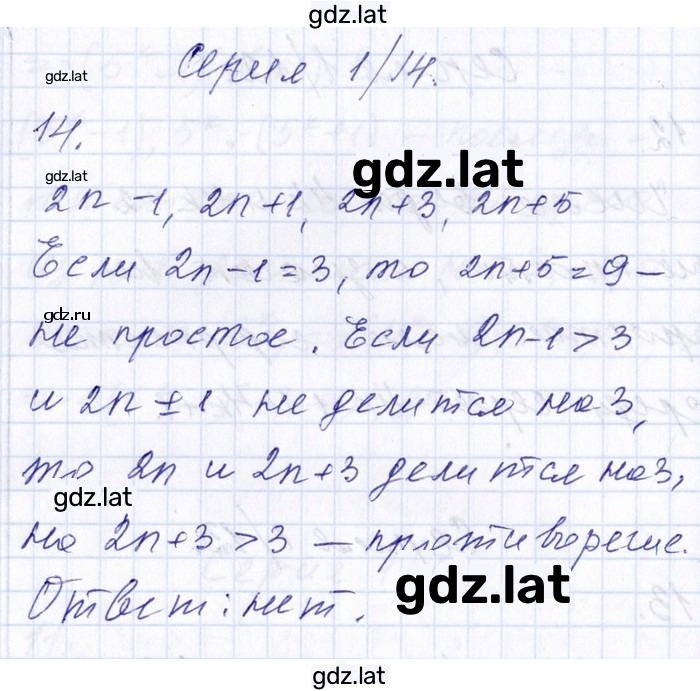 gdz.lat
Серия 1/14.
gdz.lat
14.
gdz.lat
gdz.lat
2n-1, 2n+1, 2n+3, 2n+5
gdz.lat
Если 2n-1=3, то, 2n+5=9 –
gdz.ru
не простое. Если 2n-1>3
и 2n±1 не делится на 3,
то 2n и 2n+3 делится на 3,
gdz.lat
но 2n+3>3 – противоречие.
gdz.lat
Ответ: нет.
gdz.lat